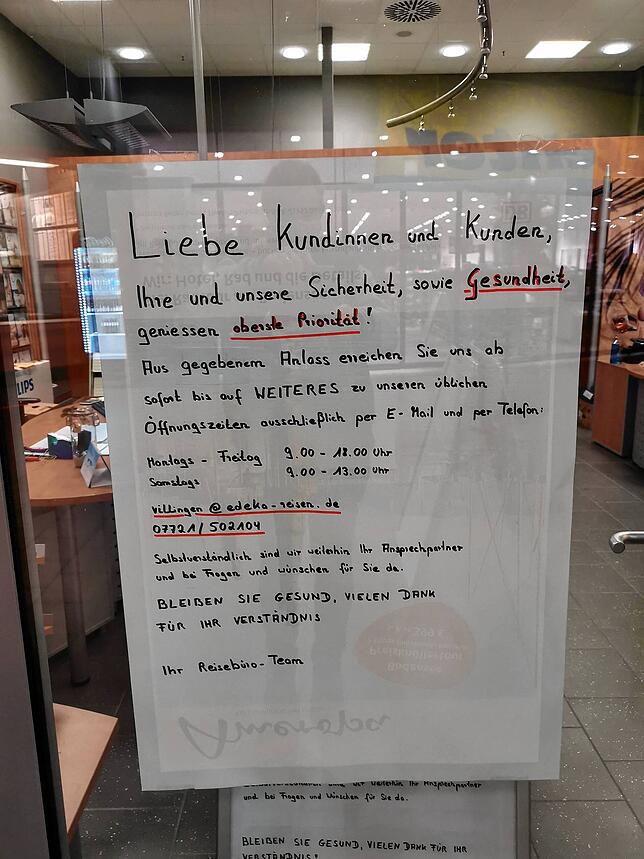 Liebe Kundinnen und Kunden,
Ihre und unsere Sicherheit, sowie Gesundheit,
geniessen oberste Priorität!
Aus gegebenem Anlass erreichen Sie uns ab
sofort bis auf WEITERES zu unseren üblichen
Öffnungszeiten ausschließlich per E-Mail und per Telefon:
Montags - Freitag 9.00 - 18.00 Uhr
Samstags 9.00 - 13.00 Uhr
villingen @ edeka-reisen.de
07721/502104
Selbstverständlich sind wir weiterhin Ihr Ansprechpartner
und bei Fragen und wünschen für Sie da.
BLEIBEN SIE GESUND, VIELEN DANK
FÜR IHR VERSTÄNDNIS
Ihr Reisebüro-Team
Selbstverständlich sind wir weiterhin Ihr Ansprechpartner
und bei Fragen und Wünschen für Sie da.
BLEIBEN SIE GESUND, VIELEN DANK FÜR IHR
VERSTÄNDNIS!